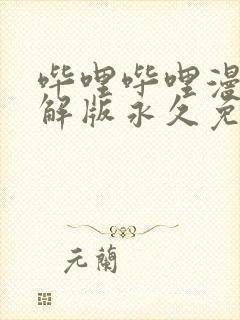 哔哩哔哩漫
解版永久免
元蘭